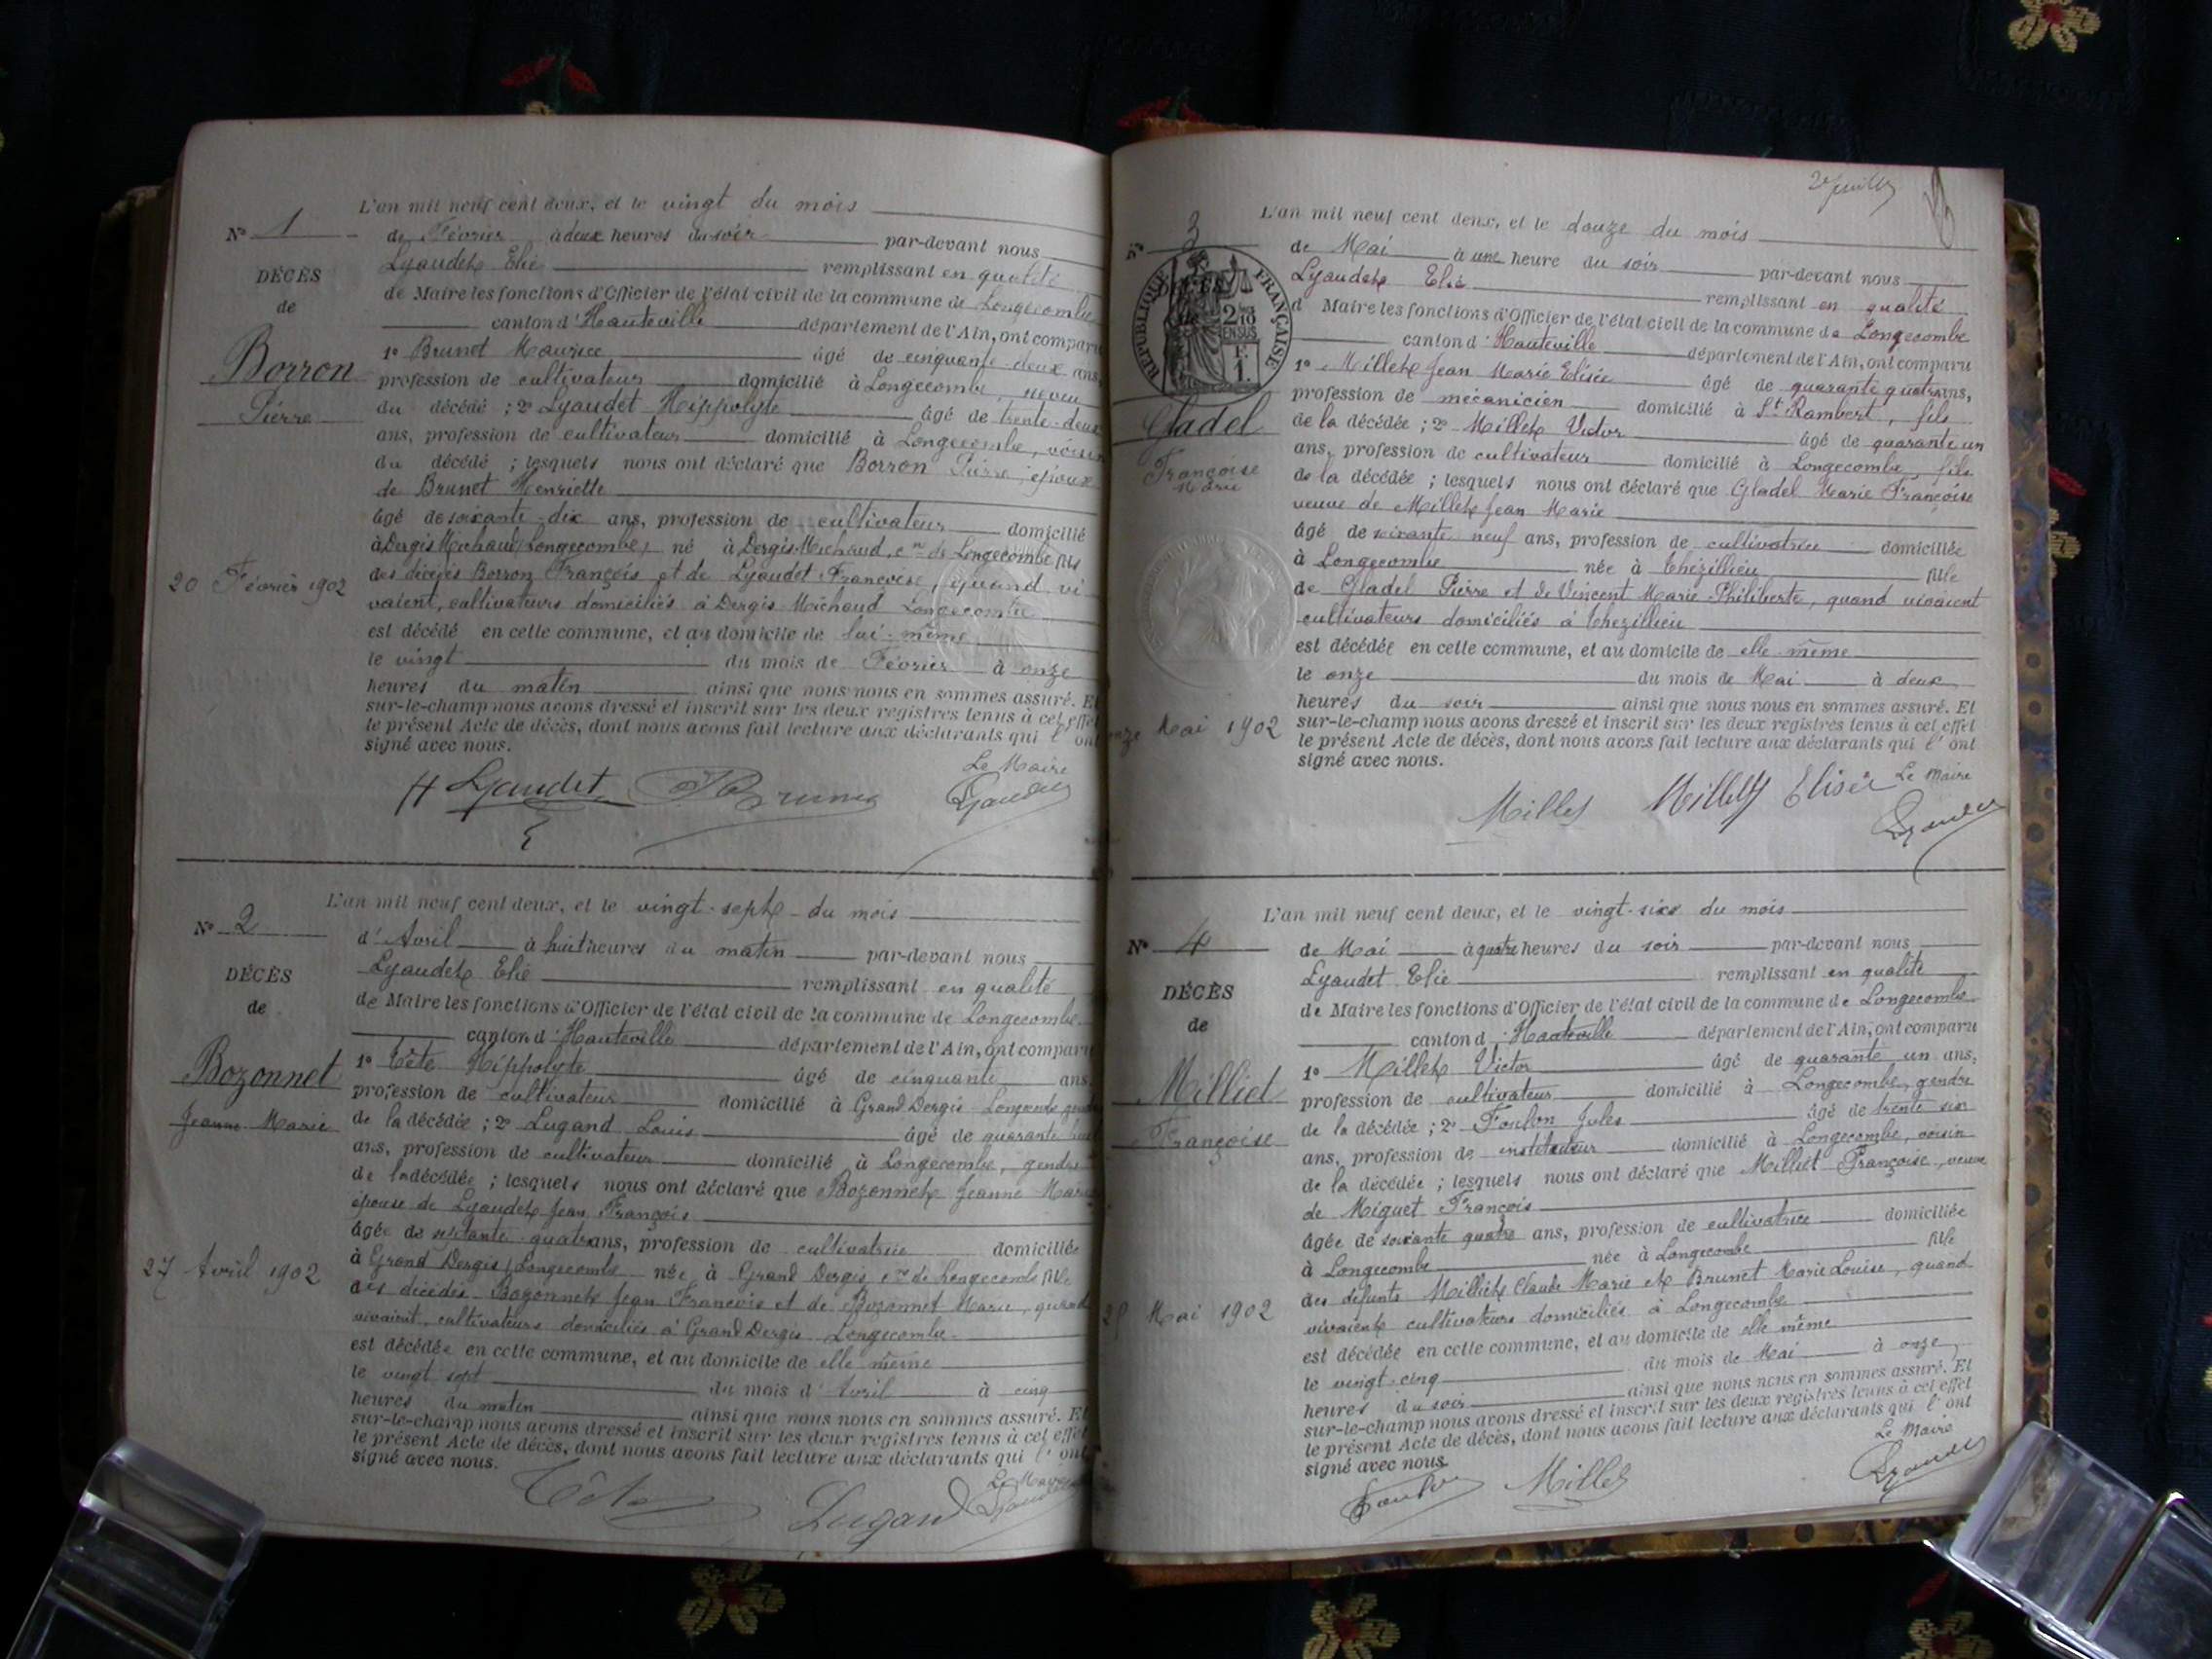 L'an mil neuf cent deux, et le vingt du mois
No 1
de Février à deux heures du soir par-devant nous
Lyaudet Elie remplissant en qualité
DÉCÈS
de Maire les fonctions d'Officier de l'état civil de la commune de Longecombe
de
canton d'Hauteville département de l'Ain, ont comparu
1o Brunet Maurice âgé de cinquante-deux ans,
Borron
profession de cultivateur domicilié à Longecombe, neveu
Pierre
du décédé ; 2o Lyaudet Hippolyte âgé de trente-deux
ans, profession de cultivateur domicilié à Longecombe, voisin
du décédé ; lesquels nous ont déclaré que Borron Pierre, époux
de Brunet Henriette
âgé de soixante-dix ans, profession de cultivateur domicilié
à Dergis Michaud, Longecombe, né à Dergis-Michaud, cne de Longecombe fils
20 Février 1902
des décédés Borron François et de Lyaudet Françoise, quand vi
vaient, cultivateurs domiciliés à Dergis Michaud Longecombe
est décédé en cette commune, et au domicile de lui-même
le vingt du mois de Février à onze
heures du matin ainsi que nous nous en sommes assuré. Et
sur-le-champ nous avons dressé et inscrit sur les deux registres tenus à cet effet
le présent Acte de décès, dont nous avons fait lecture aux déclarants qui l'ont
signé avec nous.
Le Maire
H Lyaudet Brunet Lyaudet
L'an mil neuf cent deux, et le vingt-sept du mois
No 2
d'Avril à huit heures du matin par-devant nous
Lyaudet Elie remplissant en qualité
DÉCÈS
de Maire les fonctions d'Officier de l'état civil de la commune de Longecombe
de
canton d'Hauteville département de l'Ain, ont comparu
1o Tête Hippolyte âgé de cinquante ans
Bozonnet
profession de cultivateur domicilié à Grand Dergis Longecombe gendre
Jeanne Marie
de la décédée ; 2o Lugand Louis âgé de quarante huit
ans, profession de cultivateur domicilié à Longecombe, gendre
de la décédée ; lesquels nous ont déclaré que Bozonnet Jeanne Marie
épouse de Lyaudet Jean François
âgée de quatre ans, profession de cultivatrice domiciliée
à Grand Dergis, Longecombe née à Grand Dergis, cne de Longecombe fille
27 Avril 1902
des décédés Bozonnet Jean François et de Bozonnet Marie, quand
vivaient, cultivateurs domiciliés à Grand Dergis Longecombe
est décédée en cette commune, et au domicile de elle même
le vingt sept du mois d'Avril à cinq
heures du matin ainsi que nous nous en sommes assuré. Et
sur-le-champ nous avons dressé et inscrit sur les deux registres tenus à cet effet
le présent Acte de décès, dont nous avons fait lecture aux déclarants qui l'ont
signé avec nous.
Le Maire
Tête Lugand Lyaudet
2e feuillet
L'an mil neuf cent deux, et le douze du mois
No 3
de Mai à une heure du soir par-devant nous
Lyaudet Elie remplissant en qualité
RÉPUBLIQUE FRANÇAISE
2/10 EN SUS
F. 1.
d Maire les fonctions d'Officier de l'état civil de la commune de Longecombe
canton d'Hauteville département de l'Ain, ont comparu
1o Millet Jean Marie Elisée âgé de quarante quatre ans,
profession de mécanicien domicilié à St Rambert, fils
Gladel
de la décédée ; 2o Millet Victor âgé de quarante un
ans, profession de cultivateur domicilié à Longecombe, fils
Françoise
Marie
de la décédée ; lesquels nous ont déclaré que Gladel Marie Françoise
veuve de Millet Jean Marie
âgé de soixante neuf ans, profession de cultivatrice domiciliée
à Longecombe née à Thézillieu fille
de Gladel Pierre et de Vincent Marie-Philiberte, quand vivaient
cultivateurs domiciliés à Thezillieu
est décédée en cette commune, et au domicile de elle-même
le onze du mois de Mai à deux
heures du soir ainsi que nous nous en sommes assuré. Et
onze Mai 1902
sur-le-champ nous avons dressé et inscrit sur les deux registres tenus à cet effet
le présent Acte de décès, dont nous avons fait lecture aux déclarants qui l'ont
signé avec nous.
Le Maire
Millet Millet Elisée Lyaudet
L'an mil neuf cent deux, et le vingt-six du mois
No 4
de Mai à quatre heures du soir par-devant nous
Lyaudet Elie remplissant en qualité
DÉCÈS
de Maire les fonctions d'Officier de l'état civil de la commune de Longecombe
de
canton d'Hauteville département de l'Ain, ont comparu
1o Millet Victor âgé de quarante un ans,
Milliet
profession de cultivateur domicilié à Longecombe, gendre
Françoise
de la décédée ; 2o Foulon Jules âgé de trente six
ans, profession de instituteur domicilié à Longecombe, voisin
de la décédée ; lesquels nous ont déclaré que Milliet Françoise, veuve
de Miguet François
âgée de soixante quatre ans, profession de cultivatrice domiciliée
à Longecombe née à Longecombe fille
des défunts Milliet Claude Marie et Brunet Marie Louise, quand
Mai 1902
vivaient cultivateurs domiciliés à Longecombe
est décédée en cette commune, et au domicile de elle même
le vingt-cinq du mois de Mai à onze
heures du soir ainsi que nous nous en sommes assuré. Et
sur-le-champ nous avons dressé et inscrit sur les deux registres tenus à cet effet
le présent Acte de décès, dont nous avons fait lecture aux déclarants qui l'ont
signé avec nous.
Le Maire
Foulon Millet Lyaudet